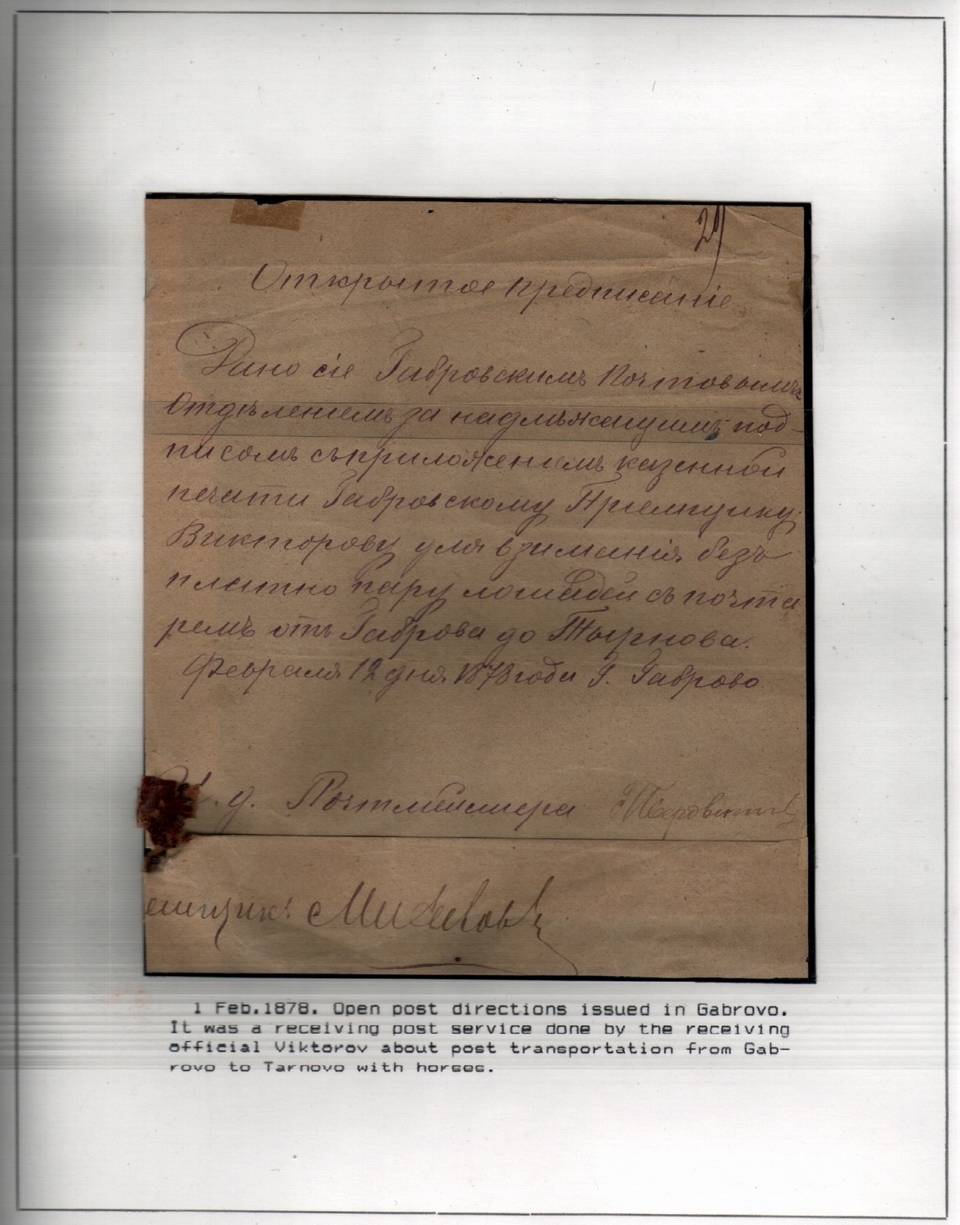 29
Открытое предписаніе
Дано сіе Габровскимъ Почтовымъ
Отдѣленіемъ за надлѣжащимъ под-
писомъ съ приложеніемъ казенной
печати Габровскому Приемщику
Викторову для взиманія безъ
платно пару лошадей съ почта
ремъ отъ Габрова до Тырнова.
Февраля 12 дня 1878 года Г. Габрово
И. д. Почтмейстера
емщикъ
1 Feb.1878. Open post directions issued in Gabrovo.
It was a receiving post service done by the receiving
official Viktorov about post transportation from Gab-
rovo to Tarnovo with horses.